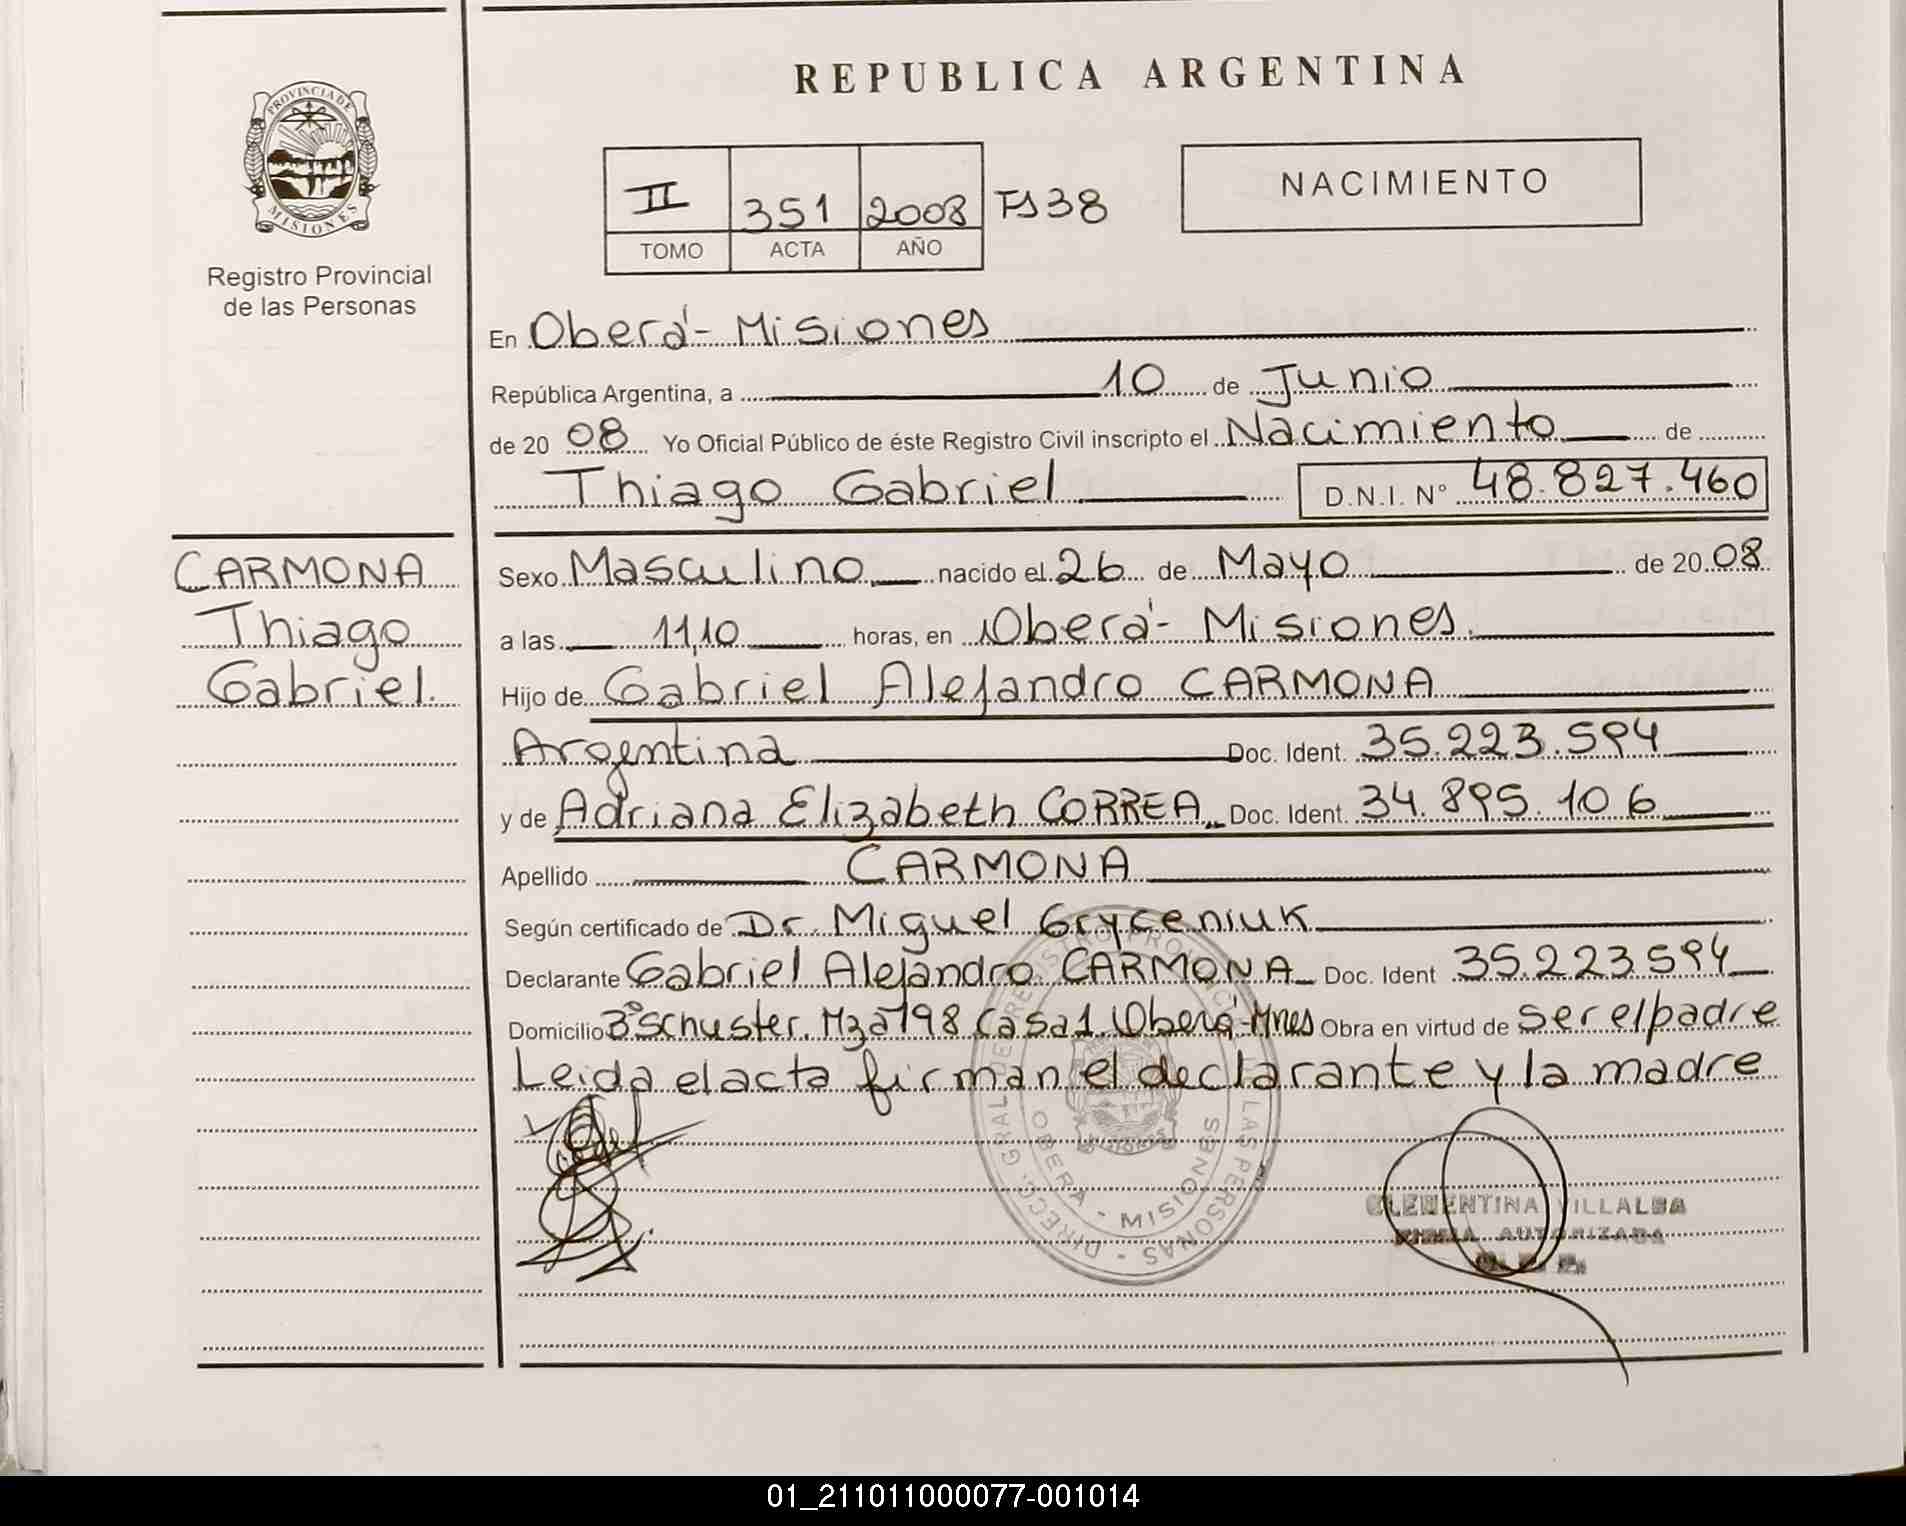 REPUBLICA ARGENTINA
PROVINCIA DE
MISIONES
Registro Provincial
de las Personas
II 351 2008 Fs 38
TOMO ACTA AÑO
NACIMIENTO
En Oberá - Misiones
República Argentina, a 10 de Junio
de 20 08 Yo Oficial Público de éste Registro Civil inscripto el Nacimiento de
Thiago Gabriel D.N.I. N° 48.827.460
CARMONA
Thiago
Gabriel.
Sexo Masculino nacido el 26 de Mayo de 20 08
a las 11,10 horas, en Oberá - Misiones.
Hijo de Gabriel Alejandro CARMONA
Argentina Doc. Ident. 35.223.594
y de Adriana Elizabeth CORREA Doc. Ident. 34.895.106
Apellido CARMONA
Según certificado de Dr. Miguel Gryceniuk
Declarante Gabriel Alejandro CARMONA Doc. Ident 35.223.594
Domicilio B° Schuster. Mza 198 Casa 1. Oberá - Mnes Obra en virtud de ser el padre
Leida el acta firman el declarante y la madre
DIRECC. GRAL. DE REGISTRO PROVINCIAL DE LAS PERSONAS
OBERA - MISIONES
MISIONES
CLEMENTINA VILLALBA
FIRMA AUTORIZADA
01_211011000077-001014